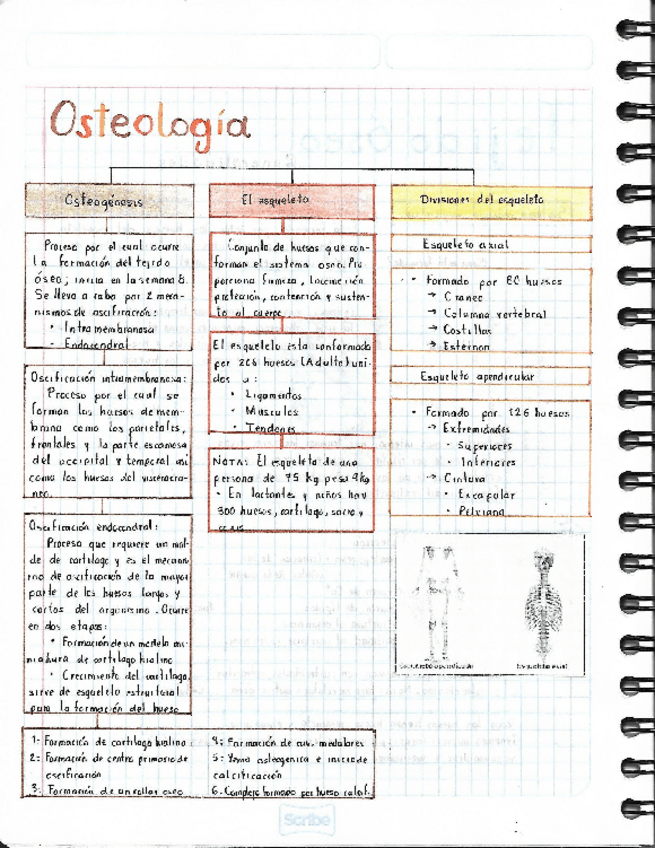 Osteología
Osteogénesis
Proceso por el cual ocurre
la formación del tejido
óseo; inicia en la semana 8.
Se lleva a cabo por 2 meca-
nismos de osificación:
• Intramembranosa
• Endocondral
Oscificación intramembranosa:
Proceso por el cual se
forman los huesos de mem-
brana como los parietales,
frontales y la parte escamosa
del occipital y temporal así
como los huesos del viscerocra-
neo.
Oscificación endocondral:
Proceso que requiere un mol-
de de cartílago y es el mecanis-
mo de oscificación de la mayor
parte de los huesos largos y
cortos del organismo. Ocurre
en dos etapas:
• Formación de un modelo mi-
niadura de cartílago hialino
• Crecimiento del cartílago,
sirve de esqueleto estructural
para la formación del hueso
1- Formación de cartílago hialino
2- Formación de centro primario de
oscificación
3- Formación de un collar óseo
4- Formación de cav. medulares
5- Yema osteogénica e inicio de
calcificación
6- Complejo formado por hueso
El esqueleto
Conjunto de huesos que con-
forman el sistema oseo. Pro
porciona firmeza, locomoción
protección, contención y susten-
to al cuerpo
El esqueleto esta conformado
por 206 huesos (Adulto) uni-
dos a:
• Ligamentos
• Musculos
• Tendones
NOTA: El esqueleto de una
persona de 75 kg pesa 9kg
• En lactantes y niños hay
300 huesos, cartílago, sacro y
Divisiones del esqueleto
Esqueleto axial
• Formado por 80 huesos
→ Craneo
→ Columna vertebral
→ Costillas
→ Esternon
Esqueleto apendicular
• Formado por 126 huesos
→ Extremidades
• Superiores
• Inferiores
→ Cintura
• Escapular
• Pelviana
Esqueleto apendicular
Esqueleto axial
Scribe